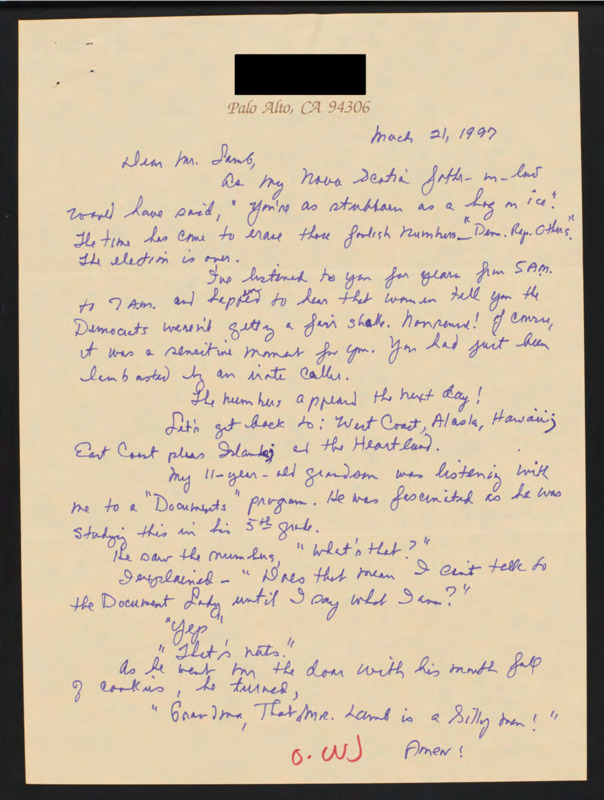 Palo Alto, CA 94306
March 21, 1997
Dear Mr. Lamb,
As my Nova Scotia father-in-law
would have said, "You're as stubborn as a hog on ice".
The time has come to erase those foolish numbers - "Dem. Rep. Others."
The election is over.
I've listened to you for years from 5 AM.
to 7 AM. and happened to hear that women tell you the
Democrats weren't getting a fair shake. Nonsense! Of course,
it was a sensitive moment for you. You had just been
lambasted by an irate caller.
The numbers appeared the next day!
Let's get back to: West Coast, Alaska, Hawaii;
East Coast plus Islands; and the Heartland.
My 11-year-old grandson was listening with
me to a "Documents" program. He was fascinated as he was
studying this in his 5th grade.
He saw the numbers, "What's that?"
I explained - "Does that mean I can't talk to
the Document Lady until I say what I am?"
"Yep"
"That's nuts."
As he went out the door with his mouth full
of cookies, he turned,
"Grandma, That Mr. Lamb is a Silly man!"
Amen!